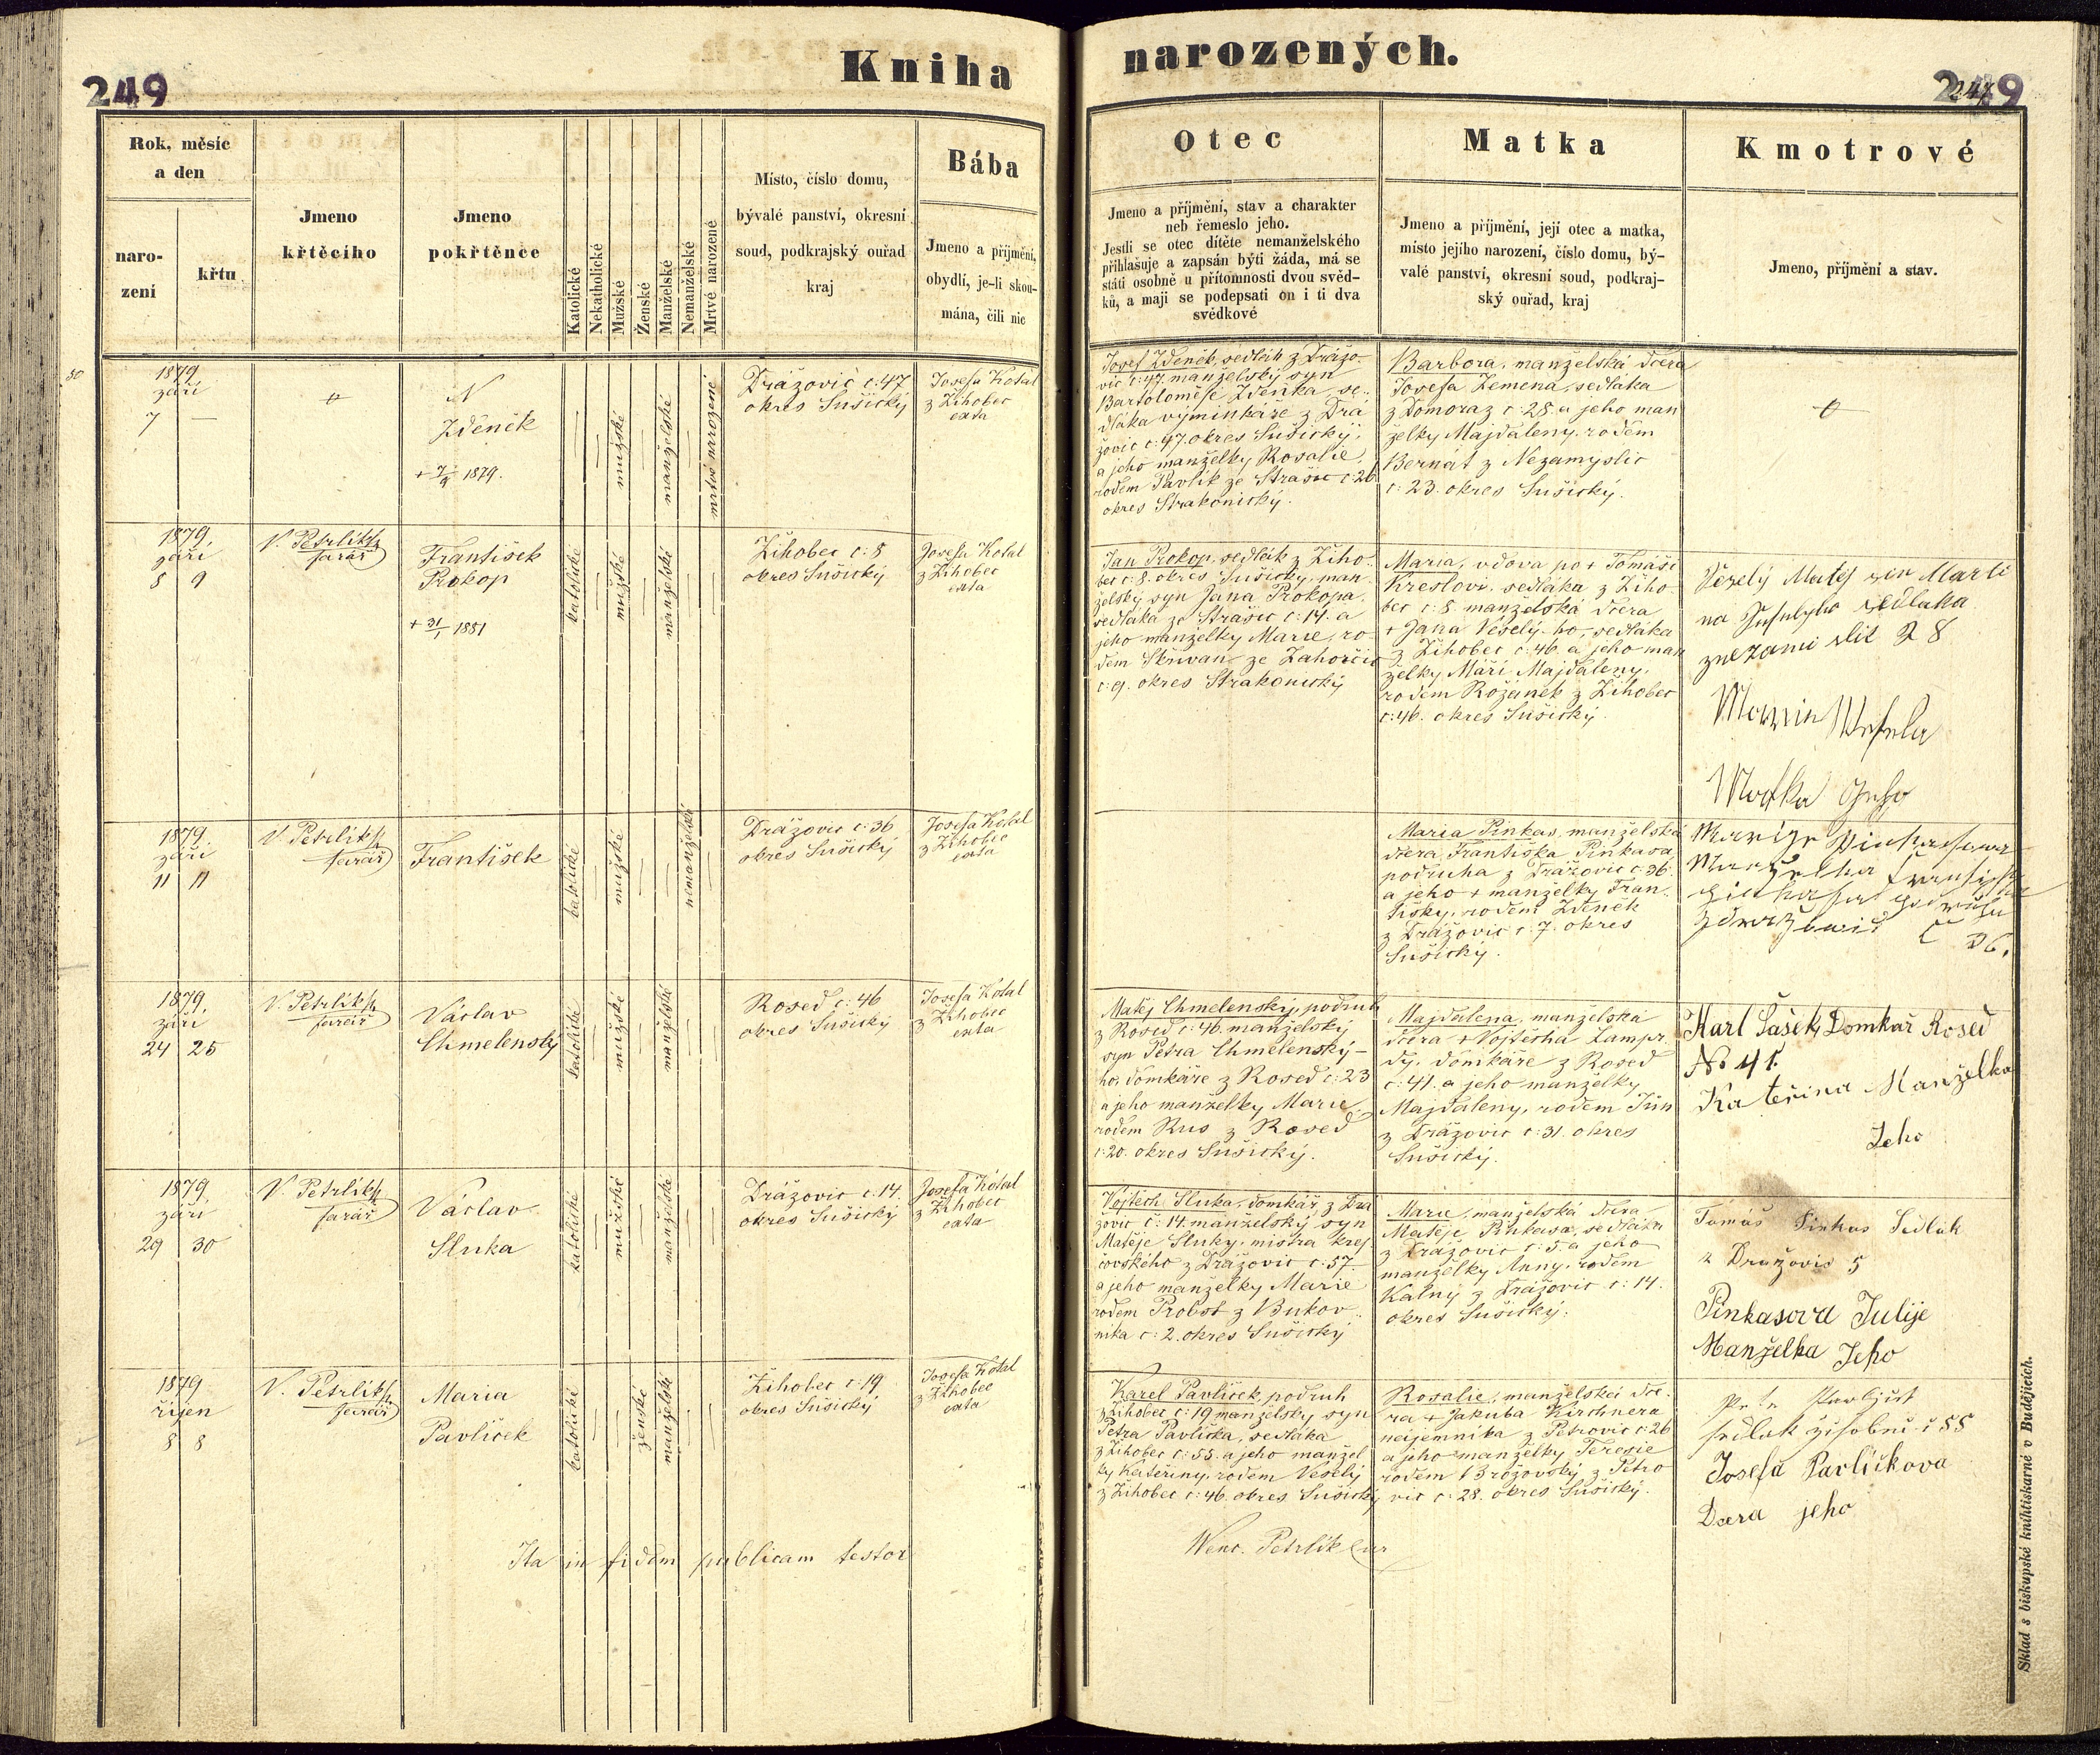 Kniha narozených.
249
249
Rok, měsíc
a den
naro-
zení
křtu
Jmeno
křtěcího
Jmeno
pokřtěnce
Katolické
Nekatholické
Mužské
Ženské
Manželské
Nemanželské
Mrtvé narozené
Místo, číslo domu,
bývalé panství, okresní
soud, podkrajský ouřad
kraj
Bába
Jmeno a příjmění,
obydlí, je-li skou-
mána, čili nic
Otec
Jmeno a příjmění, stav a charakter
neb řemeslo jeho.
Jestli se otec dítěte nemanželského
přihlašuje a zapsán býti žáda, má se
státi osobně u přítomnosti dvou svěd-
ků, a mají se podepsati on i ti dva
svědkové
Matka
Jmeno a příjmění, její otec a matka,
místo jejího narození, číslo domu, bý-
valé panství, okresní soud, podkraj-
ský ouřad, kraj
Kmotrové
Jmeno, příjmění a stav.
1879
září
7 —
N
Zděněk
+ 7/9 1879.
mužské
manželské
mrtvě narozené
Drážovic č: 47
okres Sušický
Josefa Kotal
z Žihobec
exta
Josef Zděněk, sedlák z Drážo-
vic č: 47. manželský syn
Bartoloměje Zděňka, se-
dláka výminkáře z Drá
žovic č: 47. okres Sušický,
a jeho manželky Rosalie,
rodem Pavlík ze Strašic č: 26
okres Strakonický.
Barbora, manželská dcera
Josefa Zemena, sedláka
z Domoraz č: 28. a jeho man
želky Majdaleny, rodem
Bernat z Nezamyslic
č: 23. okres Sušický.
1879,
září
8 9
V. Petrlík
farář
František
Prokop
+ 31/1 1881
katolické
mužské
manželské
Žihobec č: 8
okres Sušický
Josefa Kotal
z Žihobec
exta
Jan Prokop, sedlák z Žiho-
bec č: 8. okres Sušický, man-
želský syn Jana Prokopa,
sedláka ze Strašic č: 14. a
jeho manželky Marie, ro-
dem Skřivan ze Zahorčic
č: 9. okres Strakonický
Maria, vdova po + Tomáši
Křeslovi, sedláka z Žiho-
bec č: 8. manželská dcera
+ Jana Veselý-ho, sedláka
z Žihobec č: 46. a jeho man
želky Máří Majdaleny,
rodem Rozanek z Žihobec
č: 46. okres Sušický.
Veselý Matěj sin Marti
na sedlaka
28
Matka
1879.
září
11 11
V. Petrlík
farář
František
katolické
mužské
nemanželské
Drážovic č: 36
okres Sušický
Josefa Kotal
z Žihobec
exta
Maria Pinkas, manželská
dcera Františka Pinkasa
podruha z Drážovic č: 36.
a jeho + manželky Fran-
tišky, rodem Zděněk
z Drážovic č: 7. okres
Sušický.
36.
1879,
září
24 25
V. Petrlík
farář
Václav
Chmelenský
katolické
mužské
manželské
Rosed č: 46
okres Sušický
Josefa Kotal
z Žihobec
exta
Matěj Chmelenský, podruh
z Rosed č: 46. manželský
syn Petra Chmelenský-
ho, domkáře z Rosed č: 23
a jeho manželky Marie,
rodem Rus z Rosed
č: 20. okres Sušický.
Majdalena, manželská
dcera + Vojtěcha Lampr
dy, domkáře z Rosed
č: 41. a jeho manželky
Majdaleny, rodem Jún
z Drážovic č: 31. okres
Sušický.
Karl Šašek Domkař Rosed
No 41.
Kateřina Manželka
Jeho
1879,
září
29 30
V. Petrlík
farář
Václav
Sluka
katolické
mužské
manželské
Drážovic č. 14.
okres Sušický
Josefa Kotal
z Žihobec
exta
Vojtěch Sluka, domkář, z Drá
žovic č: 14. manželský syn
Matěje Sluky, mistra krej
čovského z Drážovic č: 57.
a jeho manželky Marie
rodem Probst z Bukov-
níka č: 2. okres Sušický
Marie, manželská dcera
Matěje Pinkasa, sedláka
z Drážovic č: 5. a jeho
manželky Anny, rodem
Kalný z Drážovic č: 14.
okres Sušický.
Tomáš Pinkas Sedlák
z Dražovic 5
Pinkasova Julije
Manželka Jeho
1879
říjen
8 8
V. Petrlík
farář
Maria
Pavlíček
katolické
ženské
manželské
Žihobec č: 19
okres Sušický
Josefa Kotal
z Žihobec
exta
Karel Pavlíček, podruh
z Žihobec č: 19 manželský syn
Petra Pavlíčka, sedláka
z Žihobec č: 55. a jeho manžel
ky Kateřiny, rodem Veselý
z Žihobec č: 46. okres Sušický
Rosalie, manželská dce-
ra + Jakuba Kirchnera
nájemníka z Petrovic č: 26
a jeho manželky Terezie
rodem Brožovský z Petro
vic č: 28. okres Sušický.
č 55
Josefa Pavličkova
Dcera jeho
Ita in fidem publicam testor
Wenc. Petrlík
Sklad s biskupské knihtiskarně v Budějicích.